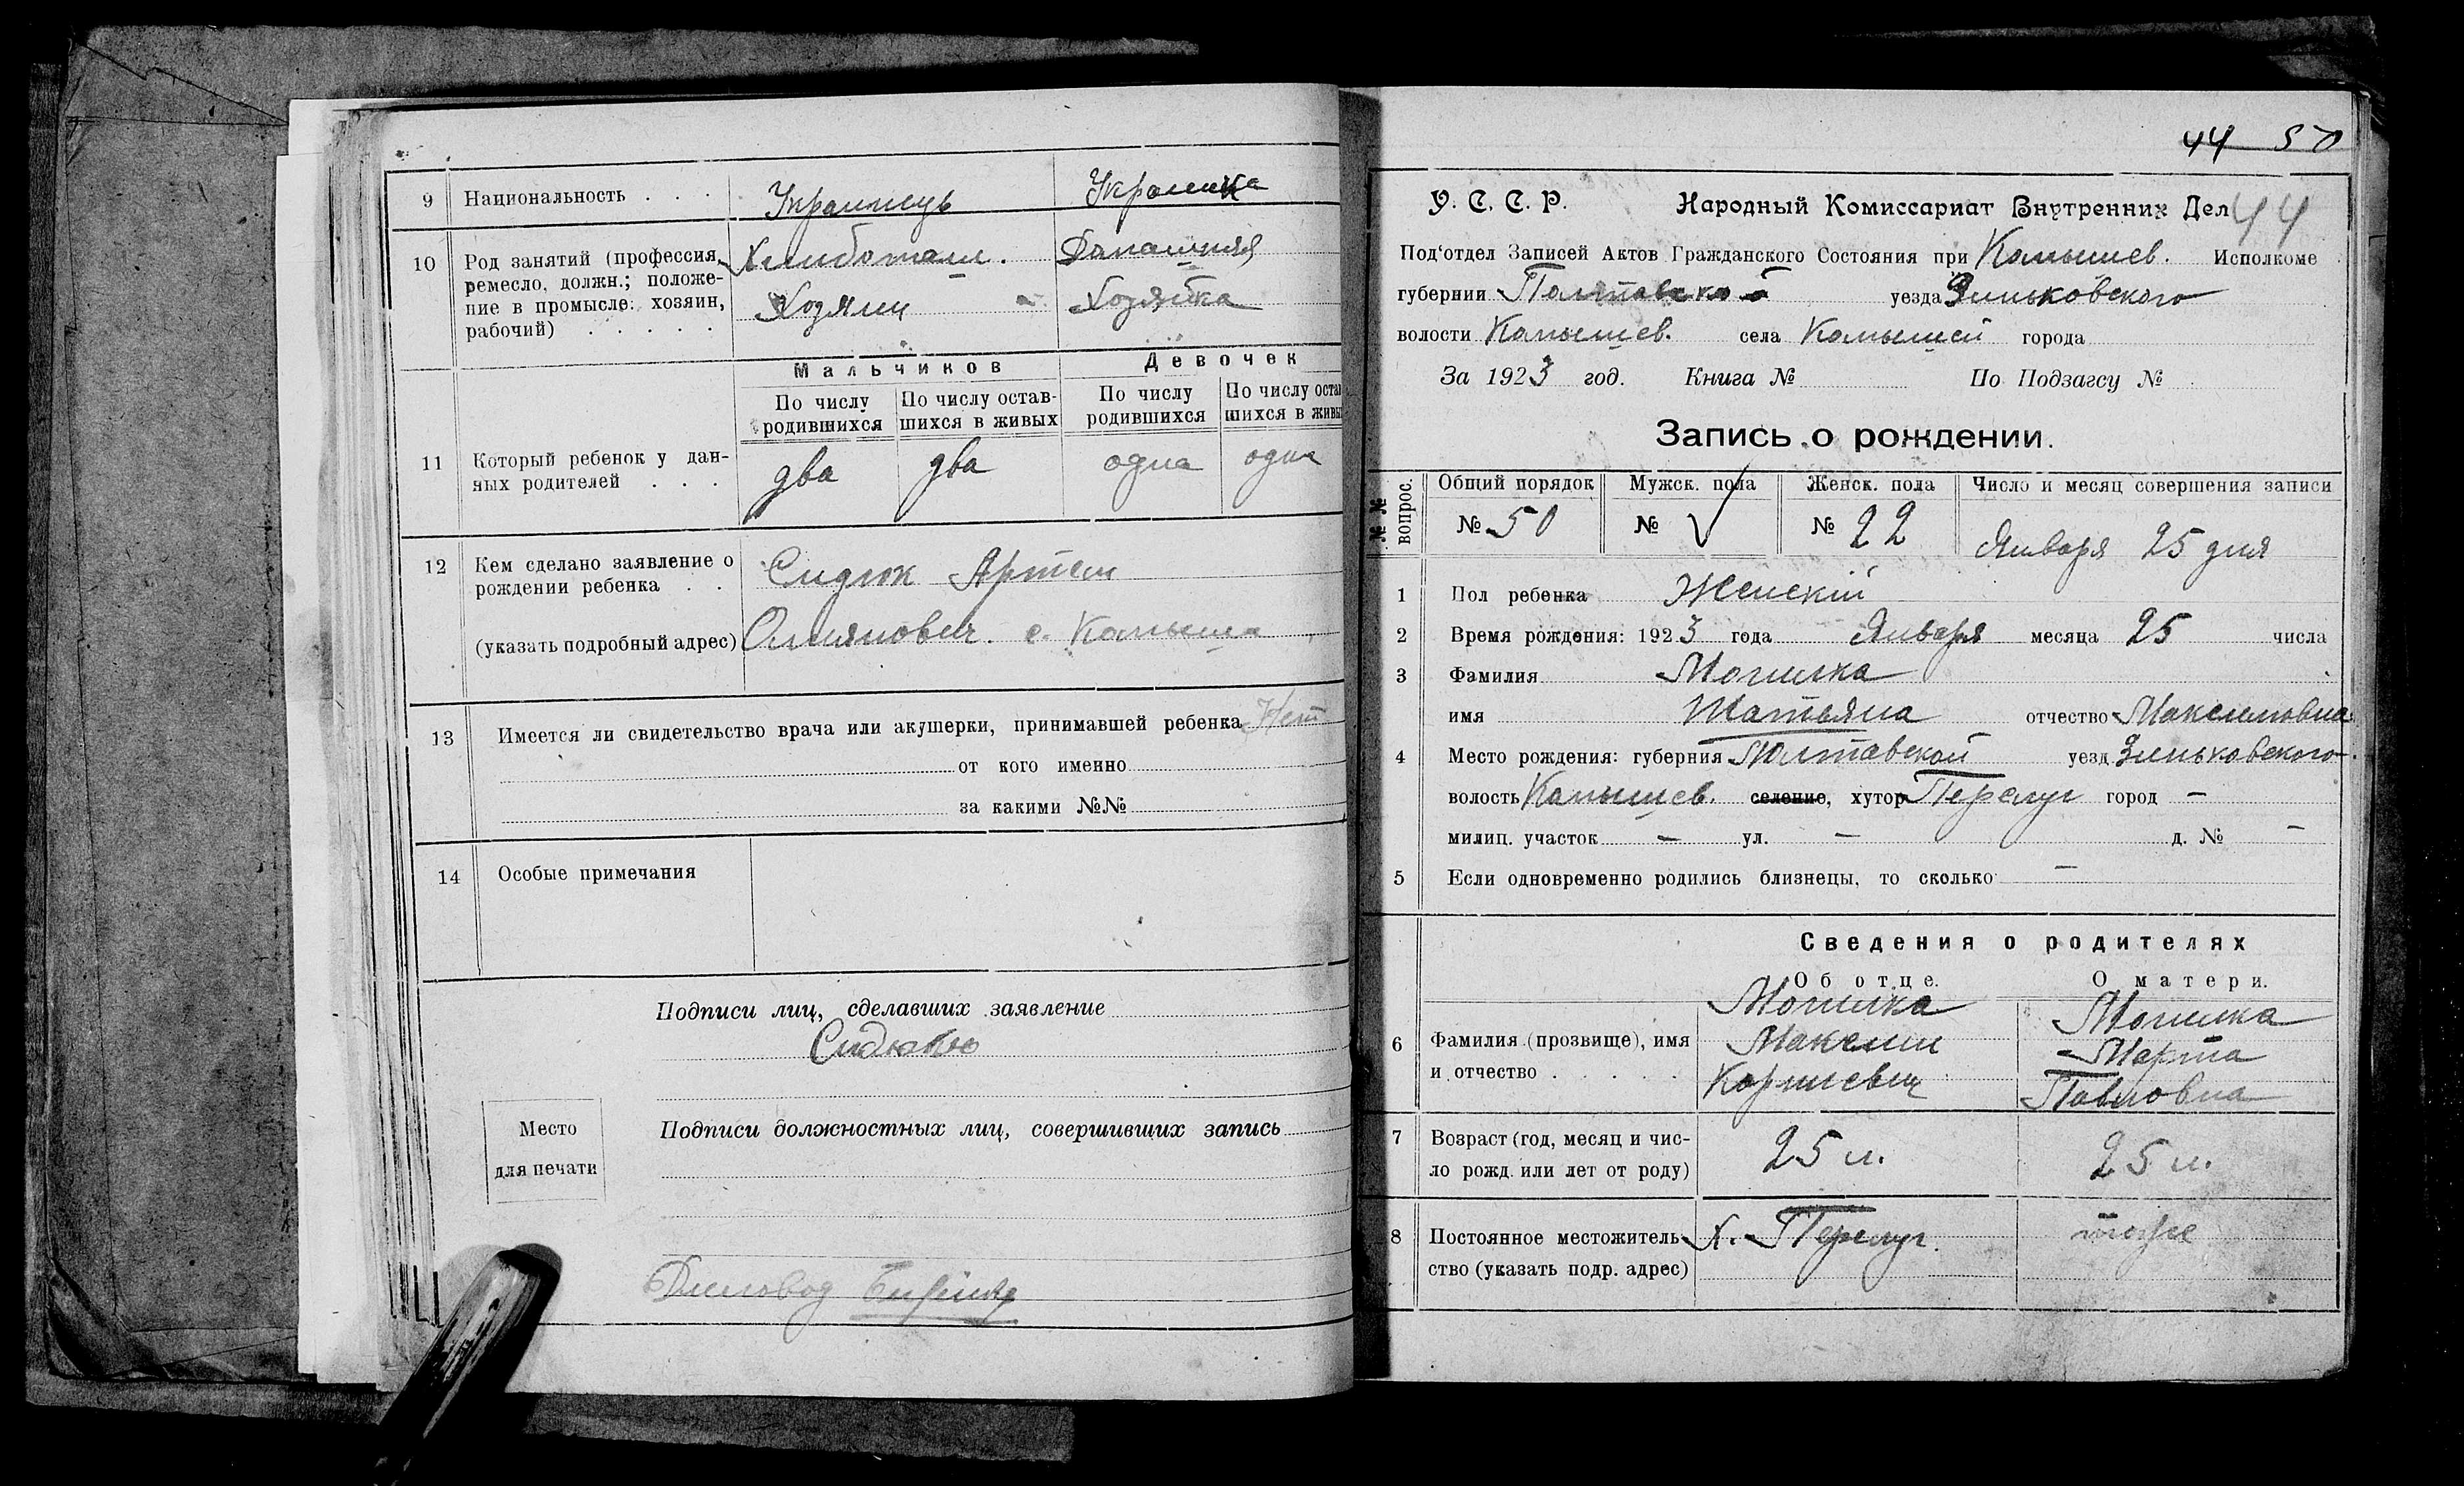 9 Национальность . . . Украинець Украинка
10 Род занятий (профессия, Хлибопаш. Домашняя
ремесло, должн.; положе-
ние в промысле: хозяин, Хозяин Хозяйка
рабочий) . . . . .
Мальчиков Девочек
По числу родившихся По числу остав-шихся в живых По числу родившихся По числу остав-шихся в живы
11 Который ребенок у дан- два два одна одна
ных родителей . . .
12 Кем сделано заявление о Сидюк Артем
рождении ребенка . .
(указать подробный адрес) с. Камыши
13 Имеется ли свидетельство врача или акушерки, принимавшей ребенка Нет
от кого именно
за какими №№
14 Особые примечания
Подписи лиц, сделавших заявление
Место
для печати
Подписи должностных лиц, совершивших запись
Диловод
44 50
У. С. С. Р. Народный Комиссариат Внутренних Дел 44
Под'отдел Записей Актов Гражданского Состояния при Камышев. Исполкоме
губернии Полтавской уезда Зиньковского
волости Камышев. села Камышей города
За 1923 год. Книга № По Подзагсу №
Запись о рождении.
№№ вопрос. Общий порядок Мужск. пола Женск. пола Число и месяц совершения записи
№ 50 № № 22 Января 25 дня
1 Пол ребенка Женский
2 Время рождения: 1923 года Января месяца 25 числа
3 Фамилия Могилка
имя Татьяна отчество Максимовна
4 Место рождения: губерния Полтавской уезд Зиньковского
волость Камышев. селение, хутор Перелуг город —
милиц. участок — ул. — д. № —
5 Если одновременно родились близнецы, то сколько —
Сведения о родителях
Об отце. О матери.
Могилка Могилка
6 Фамилия (прозвище), имя Максим Марта
и отчество . . . . . Корниевич Павловна
7 Возраст (год, месяц и чис- 25 л. 25 л.
ло рожд. или лет от роду)
8 Постоянное местожитель- х. Перелуг. тоже
ство (указать подр. адрес)